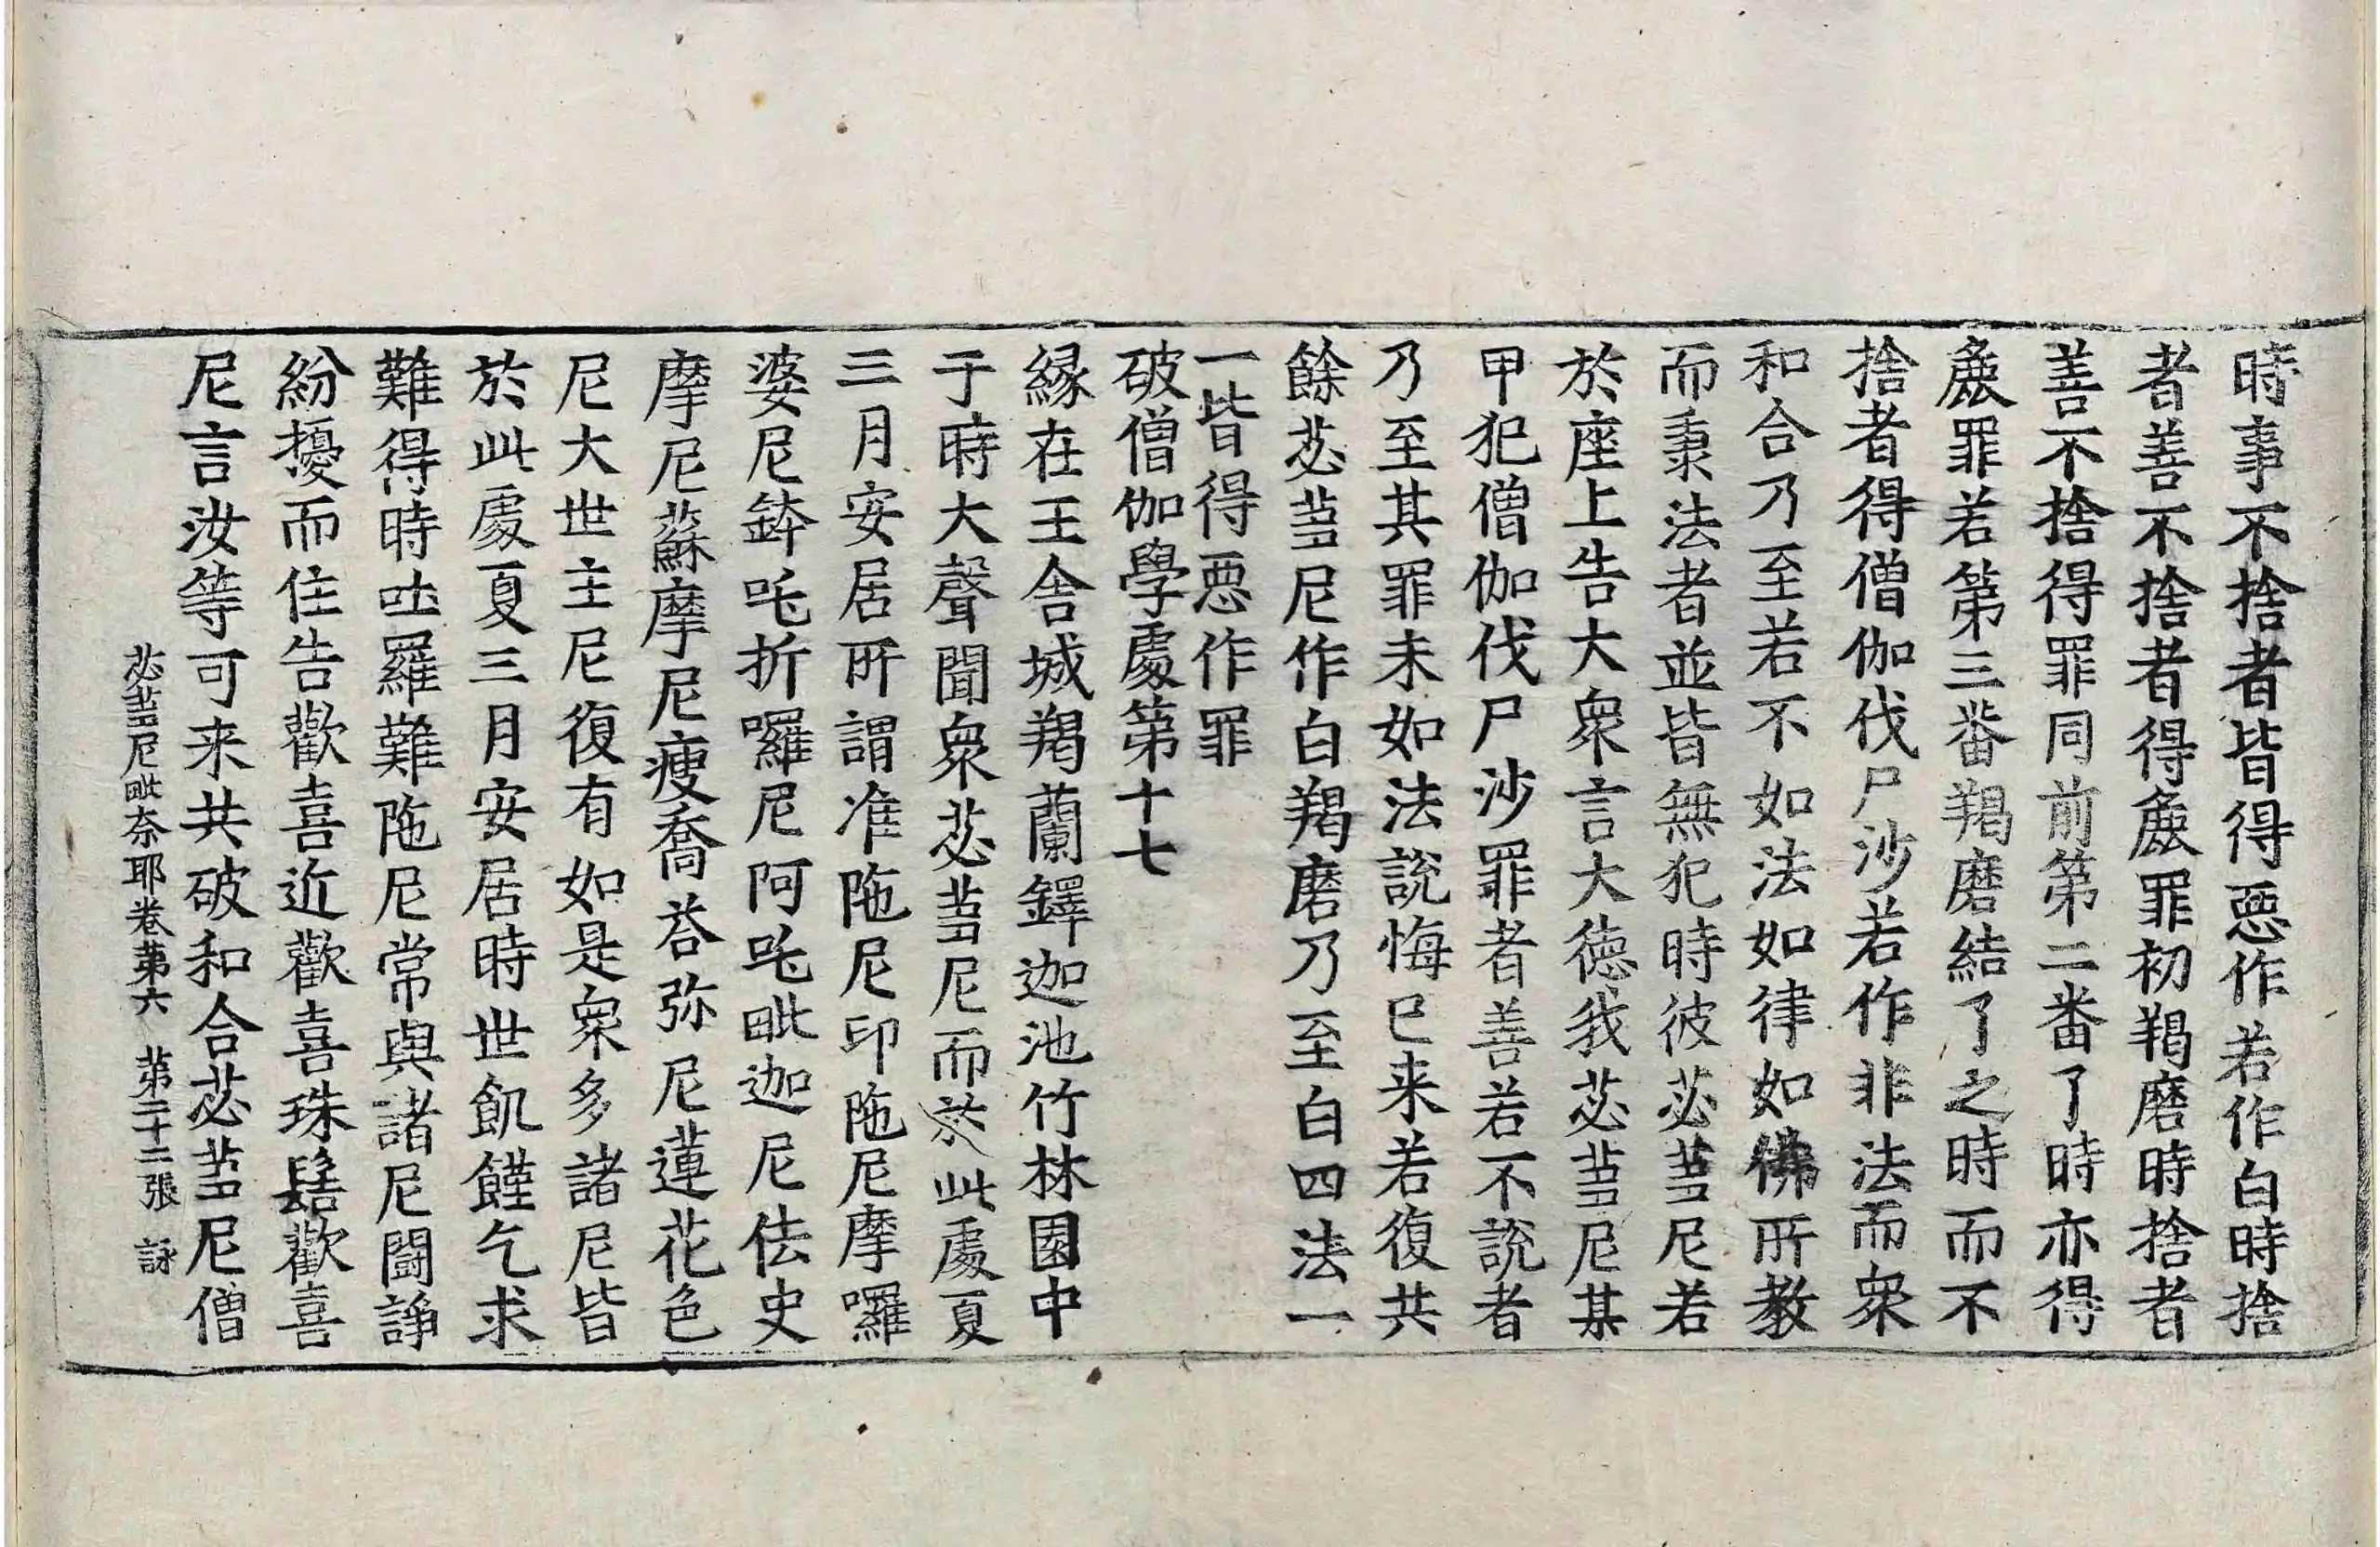 時事不捨者皆得惡作若作白時捨
者善不捨者得麁罪初羯磨時捨者
善不捨得罪同前第二番了時亦得
麁罪若第三番羯磨結了之時而不
捨者得僧伽伐尸沙若作非法而衆
和合乃至若不如法如律如佛所教
而秉法者並皆無犯時彼苾芻尼若
於座上告大衆言大德我苾芻尼某
甲犯僧伽伐尸沙罪者善若不說者
乃至其罪未如法說悔已来若復共
餘苾芻尼作白羯磨乃至白四法一
一皆得惡作罪
破僧伽學處第十七
縁在王舍城羯蘭鐸迦池竹林園中
于時大聲聞衆苾芻尼而於此處夏
三月安居所謂准陁尼印陁尼摩囉
婆尼鉢吒折囉尼阿吒毗迦尼佉史
摩尼蘇摩尼瘦喬荅弥尼蓮花色
尼大世主尼復有如是衆多諸尼皆
於此處夏三月安居時世飢饉乞求
難得時吐羅難陁尼常與諸尼鬪諍
紛擾而住告歡喜近歡喜珠髻歡喜
尼言汝等可来共破和合苾芻尼僧
苾芻尼毗奈耶卷第六 第二十二張 詠